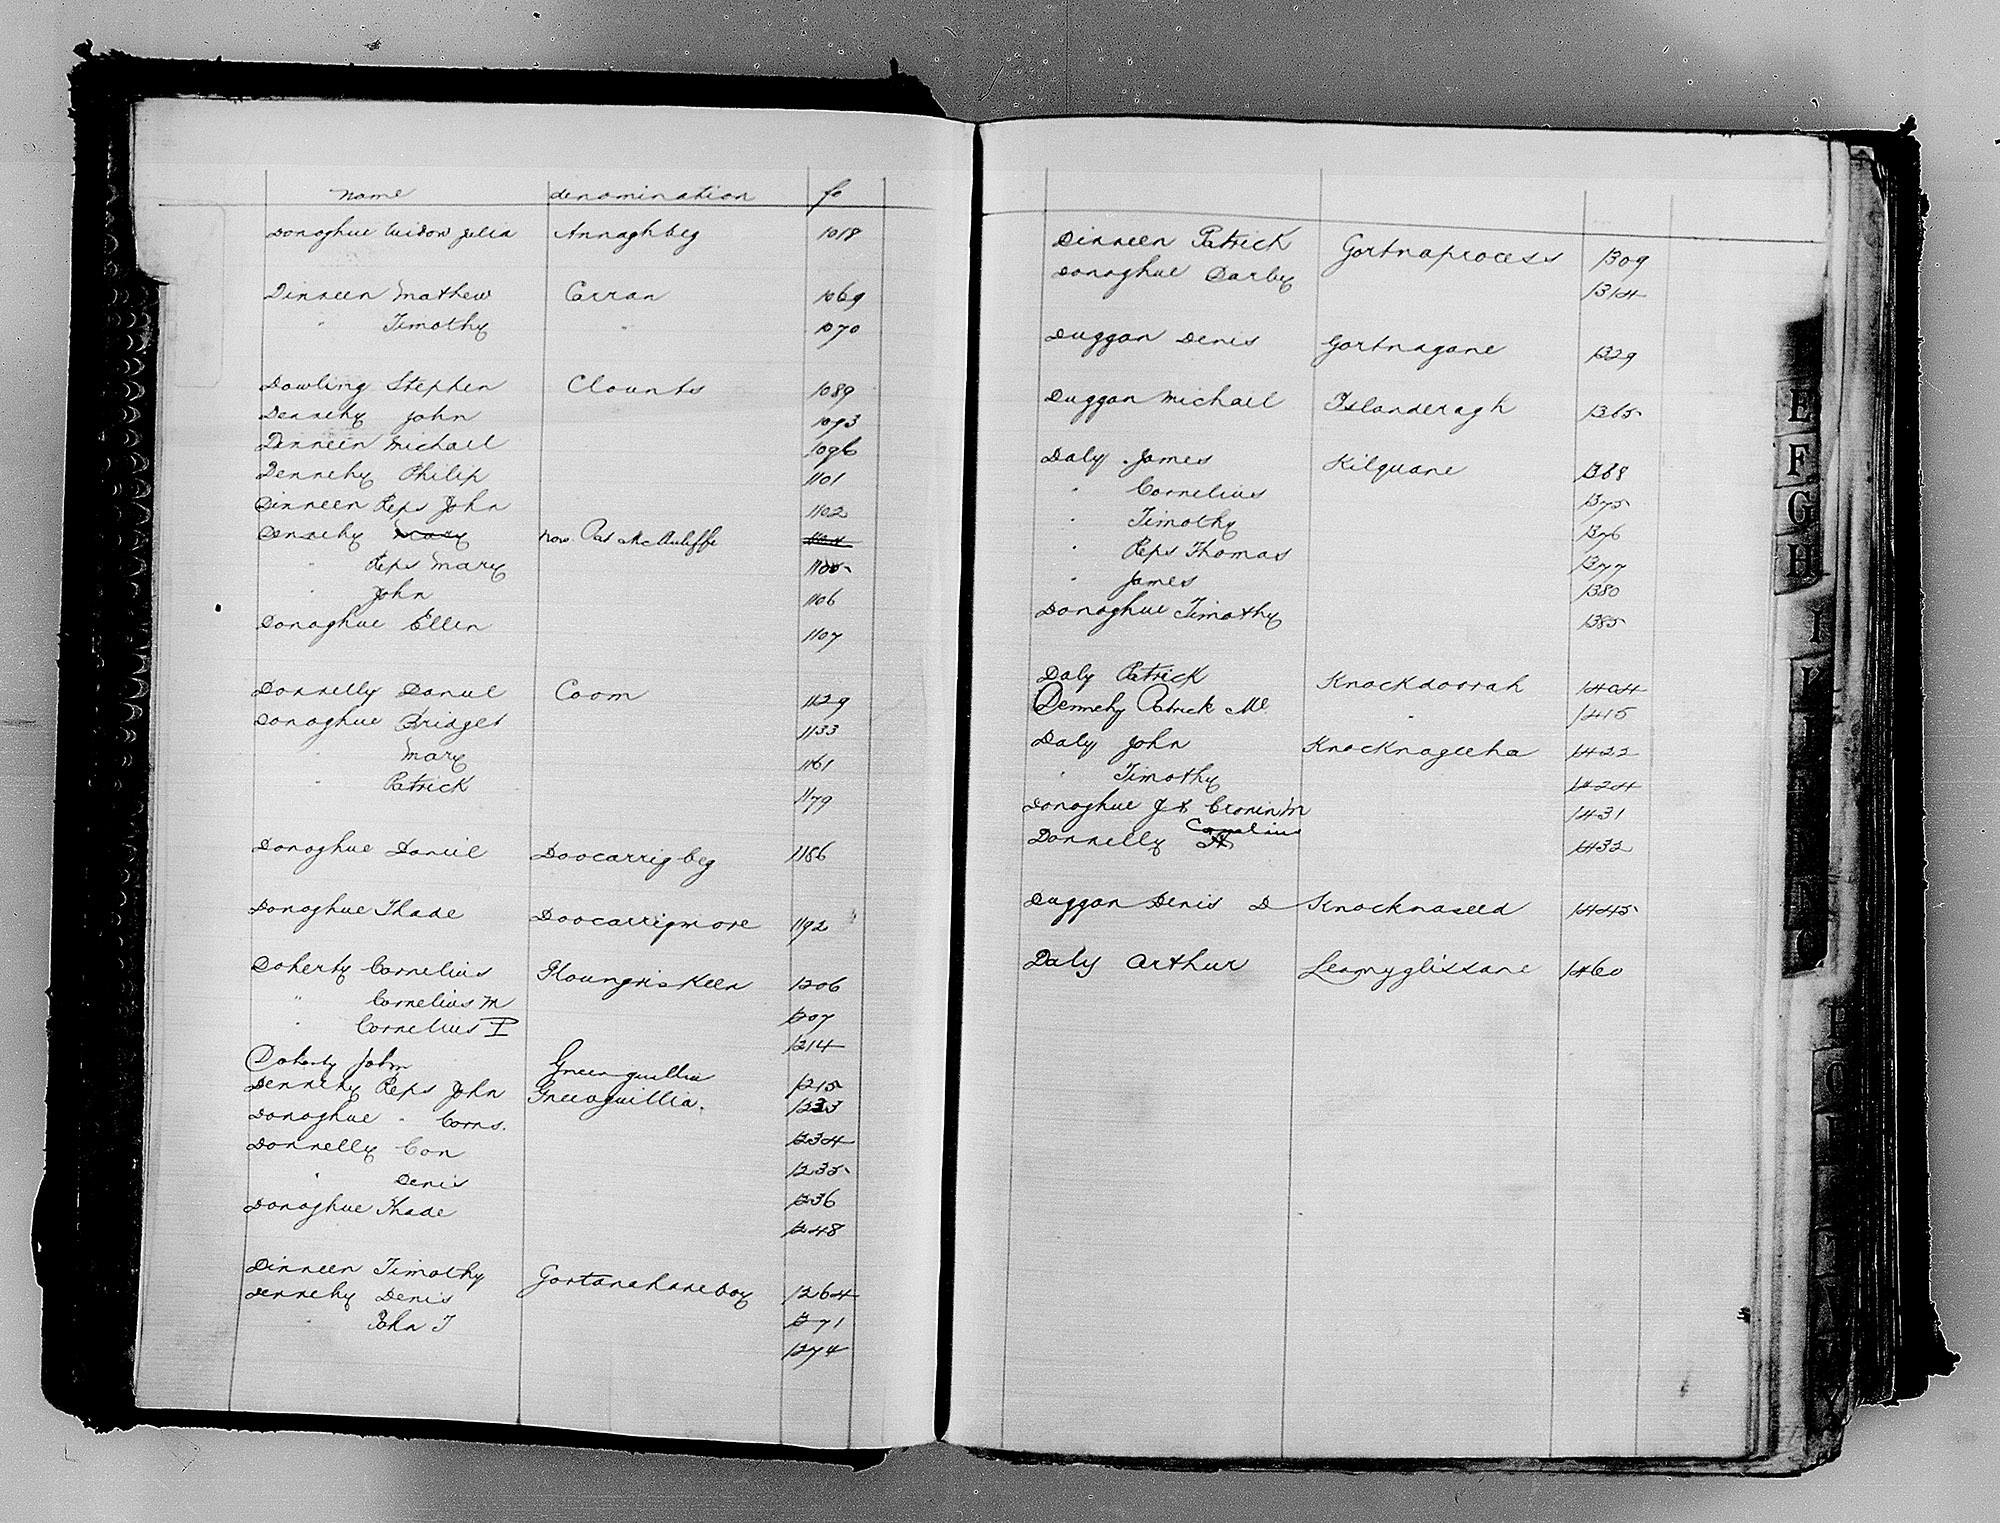 name denomination fo
Donoghue Widow Julia Annaghbeg 1018
Dinneen Mathew Carran 1069
" Timothy " 1070
Dowling Stephen Clounts 1089
Dennehy John 1093
Dinneen Michael 1096
Dennehy Philip 1101
Dinneen Reps John 1102
Dennehy Mary now Pat McAuliffe 1104
" Reps Mary 1105
" John 1106
Donoghue Ellen 1107
Donnelly Daniel Coom 1129
Donoghue Bridget 1133
Mary 1161
" Patrick 1179
Donoghue Daniel Doocarrigbeg 1186
Donoghue Thade Doocarrigmore 1192
Doherty Cornelius Glounriskeen 1206
" Cornelius M 1207
" Cornelius P 1214
Doherty John Greenguillia 1215
Dennehy Reps John Greenguillia. 1233
Donoghue " Corns. 1234
Donnelly Con 1235
" Denis 1236
Donoghue Thade 1248
Dinneen Timothy Gortanahaneboy 1264
Dennehy Denis 1271
" John T 1274
Dinneen Patrick Gortnaprocess 1309
Donoghue Darby 1314
Duggan Denis Gortnagane 1329
Duggan Michael Islanderagh 1365
Daly James Kilquane 1368
" Cornelius 1375
" Timothy 1376
" Reps Thomas 1377
" James 1380
Donoghue Timothy 1385
Daly Patrick Knockdoorah 1404
Dennehy Patrick Ml " 1415
Daly John Knocknageeha 1422
" Timothy 1424
Donoghue J & Cronin M 1431
Cornelius
Donnelly 1432
Duggan Denis D Knocknaseed 1445
Daly Arthur Leamyglissane 1460
E
F
G
H
I
K